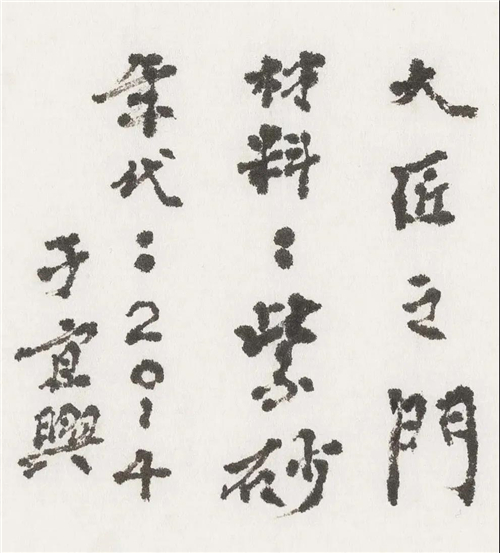 大匠之門
材料：紫砂
年代：2014
于宜興